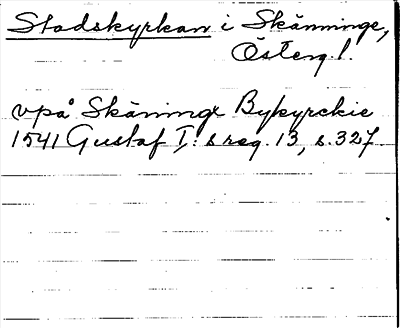 Stadskyrkan i Skänninge,
Österg.l.
vpå Skäninge Bykyrckie
1541 Gustaf I:s reg. 13, s. 327